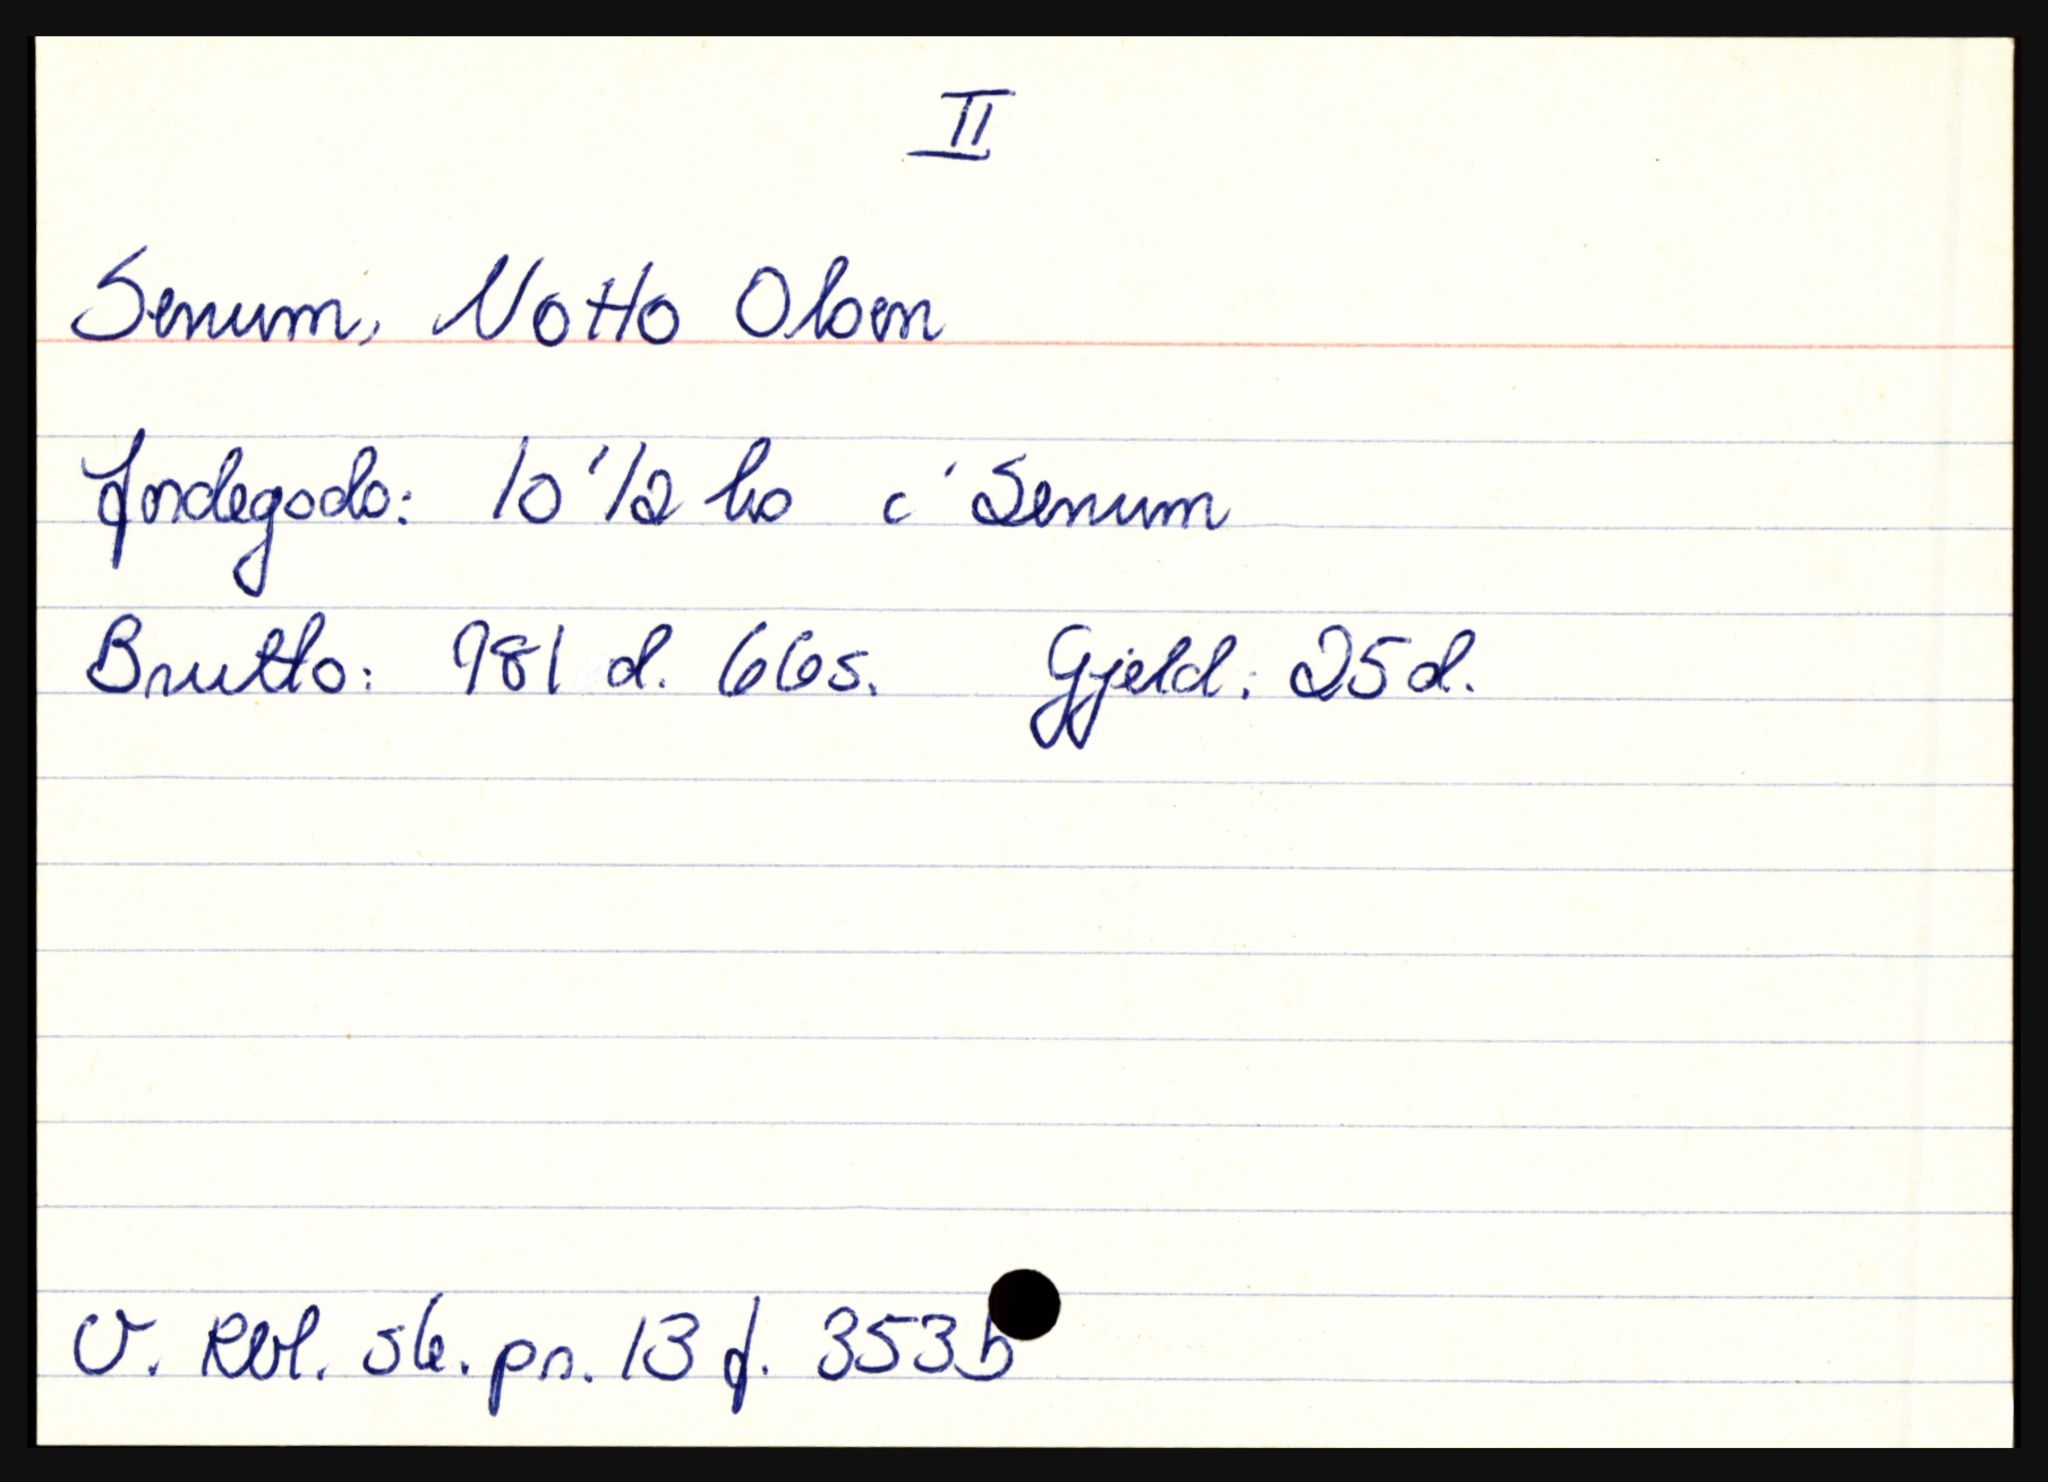 II
Senum, Notto Olsen
Jordegods: 10 1/2 hs i Senum
Brutto: 981 d. 66s. Gjeld: 25d.
V. Rbl. sk. pr. 13 f. 353b